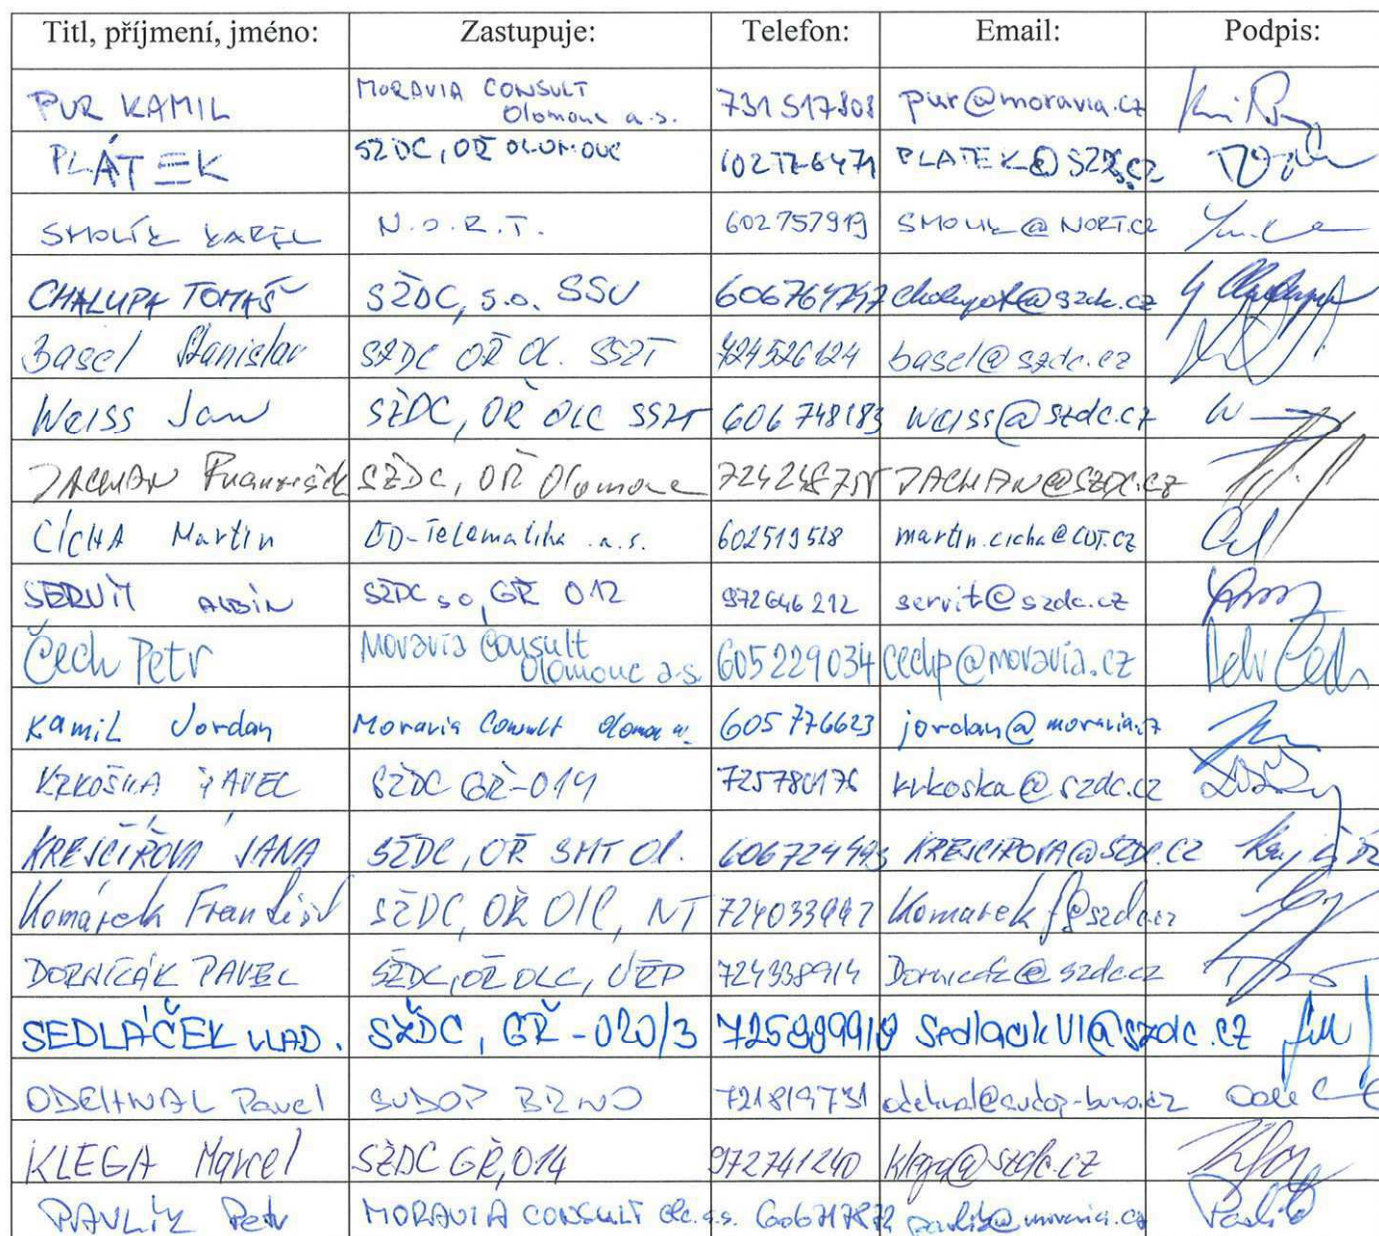 Titl, příjmení, jméno: Zastupuje: Telefon: Email: Podpis:
PUR KAMIL MORAVIA CONSULT Olomouc a.s. 731517808 pur@moravia.cz
PLÁTEK SŽDC, OŘ OLOMOUC PLATEK@SZDC.cz
SMOLÍK KAREL N.O.R.T. 602757919 SMOLIK@NORT.CZ
CHALUPA TOMÁŠ SŽDC, s.o. SSV
Basel Stanislav SŽDC OŘ Ol. SSZT 724526124 basel@szdc.cz
Weiss Jan SŽDC, OŘ OLC SSZT 606 748183 weiss@szdc.cz
JACHAN František SŽDC, OŘ Olomouc JACHAN@SZDC.CZ
CÍCHA Martin ČD-Telematika a.s. 602519528 martin.cicha@CDT.CZ
SERVÍT ALBÍN SŽDC s.o, GŘ O12 972646212 servit@szdc.cz
Čech Petr Moravia Consult Olomouc a.s. 605229034 cechp@moravia.cz Petr Čech
Kamil Jordan Moravia Consult Olomouc 605 776623 jordan@moravia.cz
KRKOŠKA PAVEL SŽDC GŘ-O14 725780176 krkoska@szdc.cz
KREJČIŘOVÁ JANA SŽDC, OŘ SMT Ol. KREJCIROVA@SZDC.CZ
Komárek František SŽDC, OŘ OLC, NT Komarekf@szdc.cz
DORNIČÁK PAVEL SŽDC, OŘ OLC, ÚŘP 724338914 Dornicak@szdc.cz
SEDLÁČEK VLAD. SŽDC, GŘ-O20/3 SedlacekVl@szdc.cz
ODEHNAL Pavel SUDOP BRNO 721819731 odehnal@sudop-brno.cz
KLEGA Marcel SŽDC GŘ, O14 972741240 klega@szdc.cz
PAVLÍK Petr MORAVIA CONSULT Olc. a.s. pavlik@moravia.cz Pavlík